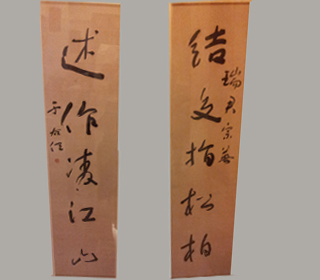 結交指松柏
瑞君宗
述作凌江山
于右任